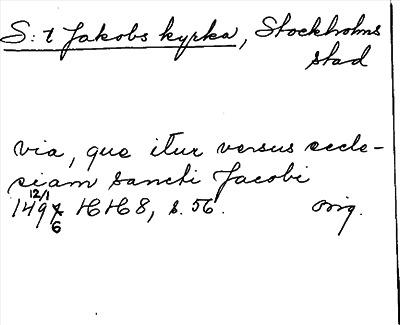 S:t Jakobs kyrka, Stockholms
stad
via, que itur versus eccle-
siam sancti Jacobi
12/1
1496 HH 8, s. 56. orig.